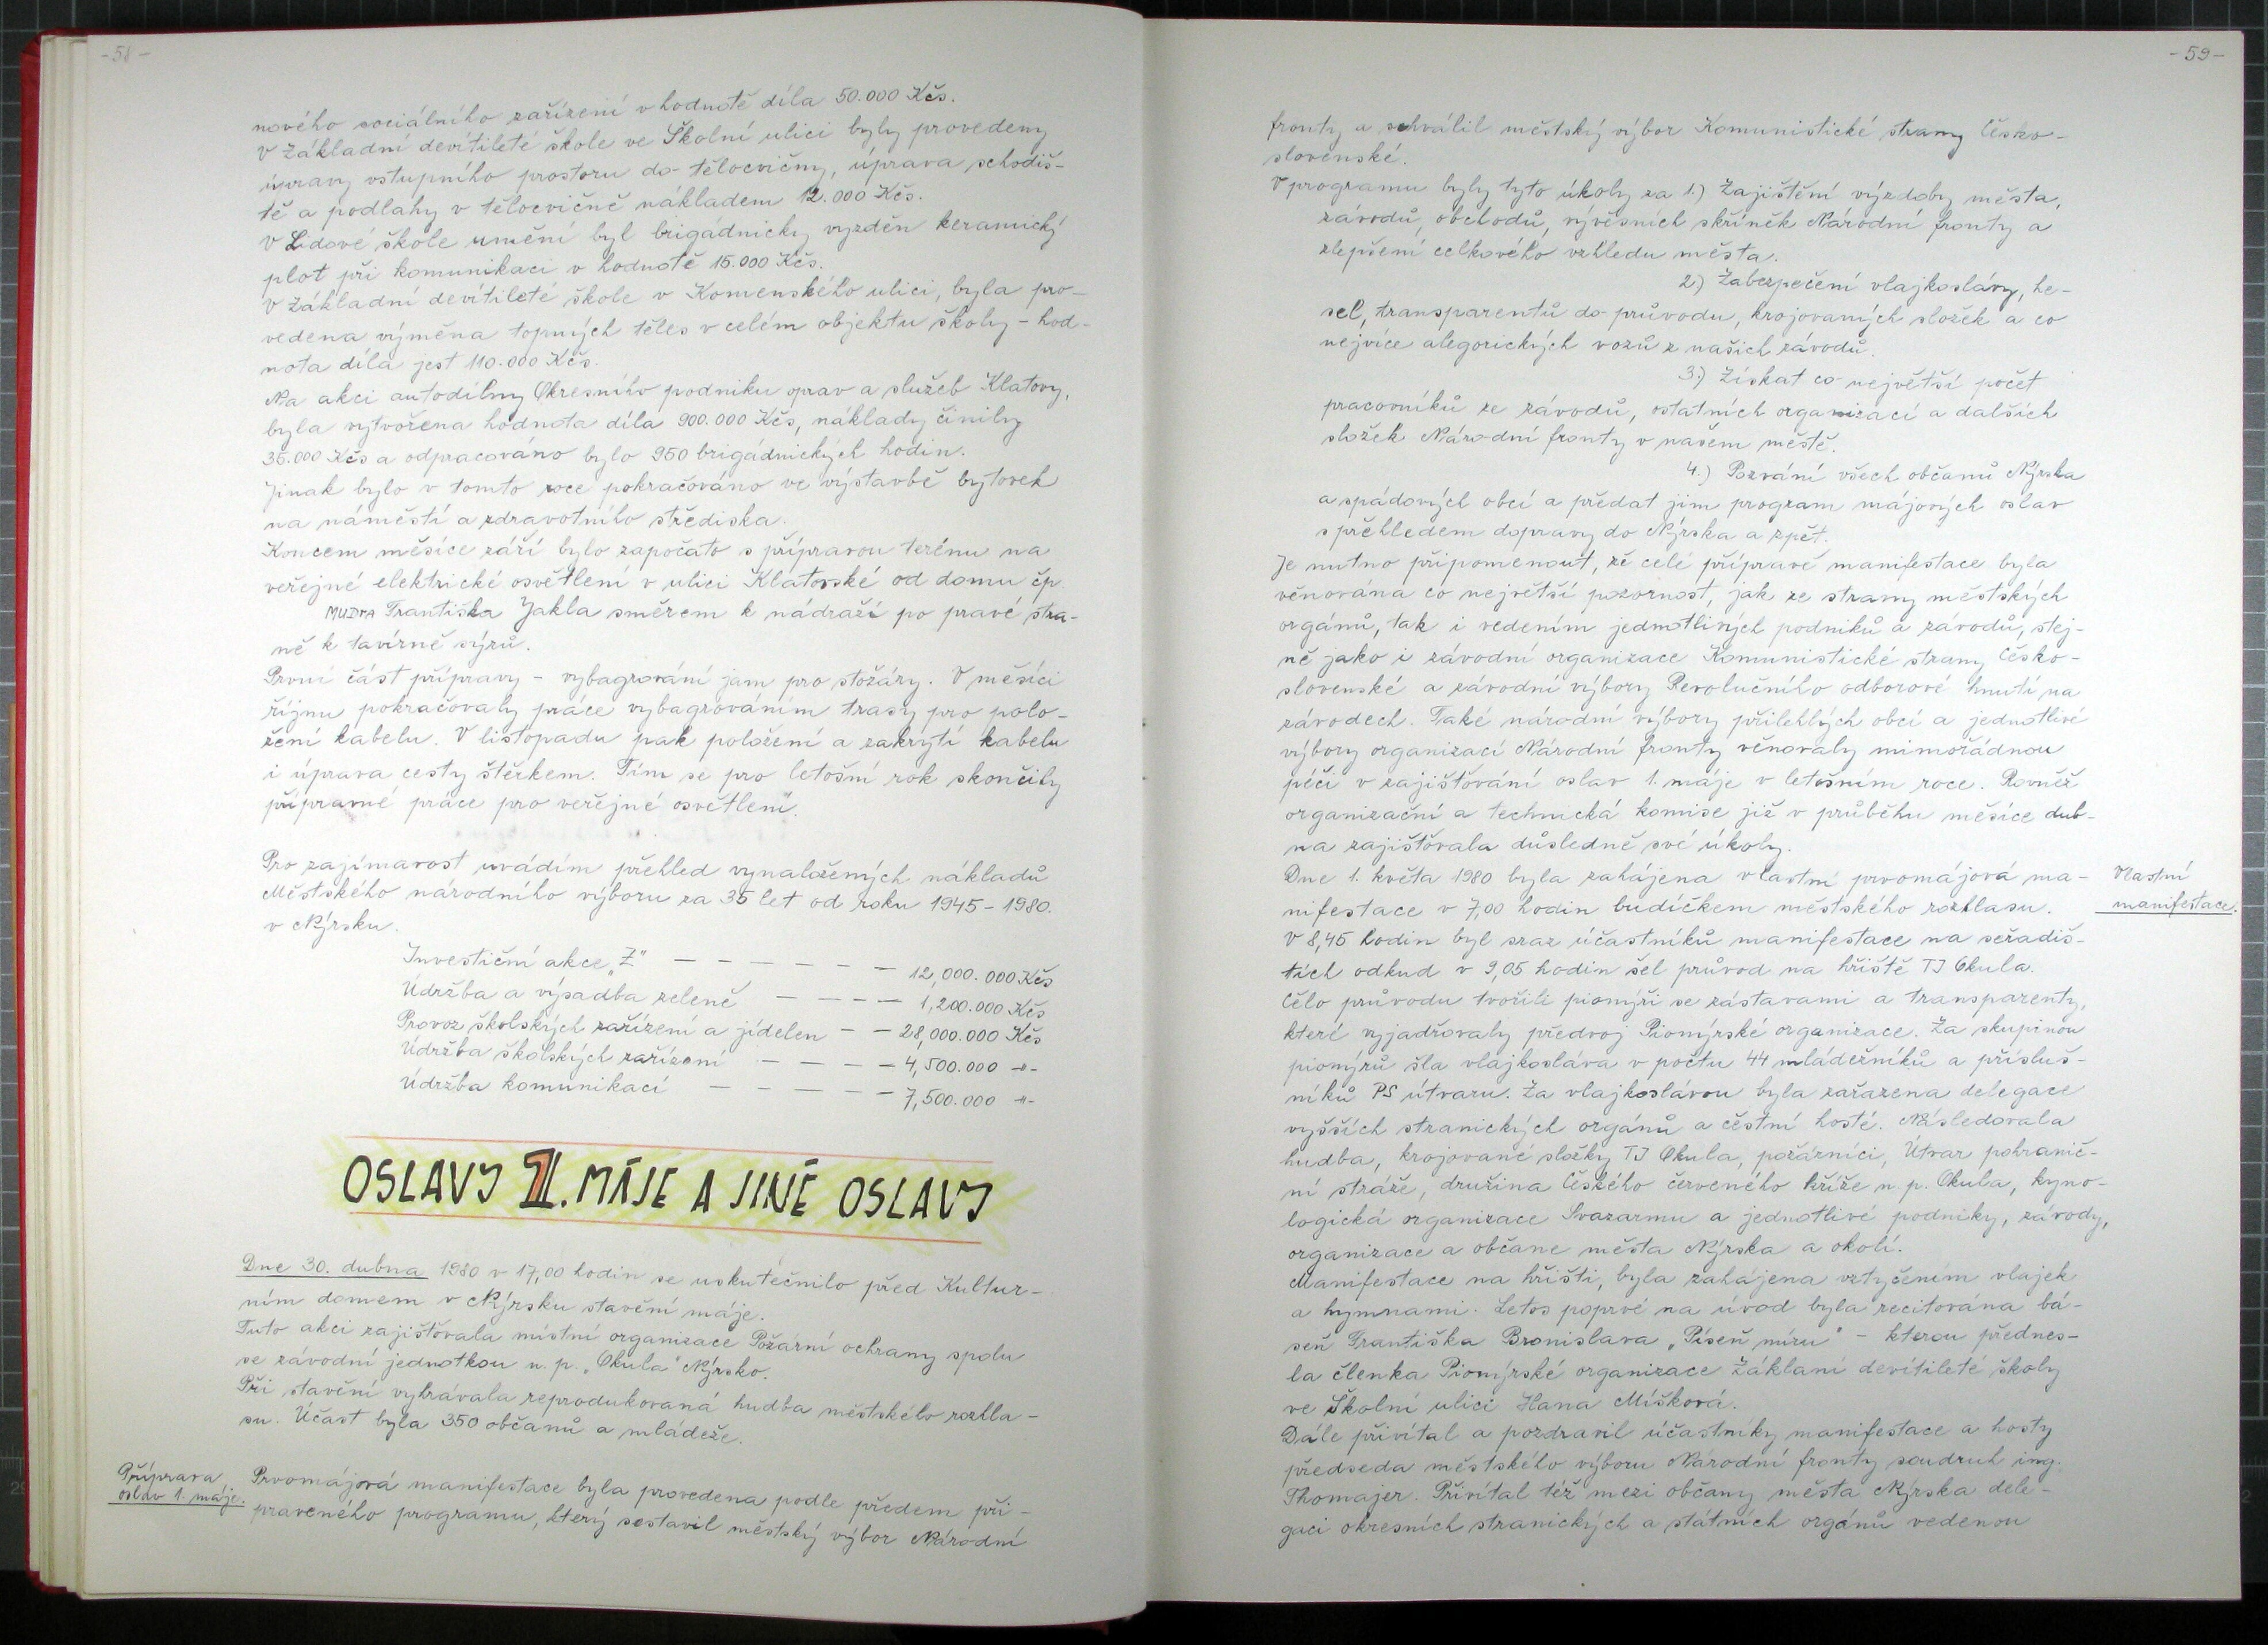 -58-
nového sociálního zařízení v hodnotě díla 50.000 Kčs.
V Základní devítileté škole ve Školní ulici byly provedeny
úpravy vstupního prostoru do tělocvičny, úprava schodiš-
tě a podlahy v tělocvičně nákladem 12.000 Kčs.
V Lidové škole umění byl brigádnicky vyzděn keramický
plot při komunikaci v hodnotě 15.000 Kčs.
V Základní devítileté škole v Komenského ulici, byla pro-
vedena výměna topných těles v celém objektu školy - hod-
nota díla jest 110.000 Kčs.
Na akci autodílny Okresního podniku oprav a služeb Klatovy,
byla vytvořena hodnota díla 900.000 Kčs, náklady činily
35.000 Kčs a odpracováno bylo 950 brigádnických hodin.
Jinak bylo v tomto roce pokračováno ve výstavbě bytovek
na náměstí a zdravotního střediska.
Koncem měsíce září bylo započato s přípravou terénu na
veřejné elektrické osvětlení v ulici Klatovské od domu čp.
MUDra Františka Jakla směrem k nádraží po pravé stra-
ně k tavírně sýrů.
První část přípravy - vybagrování jam pro stožáry. V měsíci
říjnu pokračovaly práce vybagrováním trasy pro polo-
žení kabelu. V listopadu pak položení a zakrytí kabelu
i úprava cesty štěrkem. Tím se pro letošní rok skončily
přípravné práce pro veřejné osvětlení.
Pro zajímavost uvádím přehled vynaložených nákladů
Městského národního výboru za 35 let od roku 1945 - 1980.
v Nýrsku.
Investiční akce „Z" - - - - - - - 12,000.000 Kčs
Údržba a výsadba zeleně - - - - 1,200.000 Kčs
Provoz školských zařízení a jídelen - - 28,000.000 Kčs
Údržba školských zařízení - - - - 4,500.000 -"-
Údržba komunikací - - - - - 7,500.000 -"-
OSLAVY 1. MÁJE A JINÉ OSLAVY
Dne 30. dubna 1980 v 17,00 hodin se uskutečnilo před Kultur-
ním domem v Nýrsku stavění máje.
Tuto akci zajišťovala místní organizace Požární ochrany spolu
se závodní jednotkou n. p. „Okula" Nýrsko.
Při stavění vyhrávala reprodukovaná hudba městského rozhla-
su. Účast byla 350 občanů a mládeže.
Příprava
oslav 1. máje.
Prvomájová manifestace byla provedena podle předem při-
praveného programu, který sestavil městský výbor Národní
-59-
fronty a schválil městský výbor Komunistické strany Česko-
slovenské.
V programu byly tyto úkoly za 1.) Zajištění výzdoby města,
závodů, obchodů, vývěsních skříněk Národní fronty a
zlepšení celkového vzhledu města.
2.) Zabezpečení vlajkoslávy, he-
sel, transparentů do průvodu, krojovaných složek a co
nejvíce alegorických vozů z našich závodů.
3.) Získat co největší počet
pracovníků ze závodů, ostatních organizací a dalších
složek Národní fronty v našem městě.
4.) Pozvání všech občanů Nýrska
a spádových obcí a předat jim program májových oslav
s přehledem dopravy do Nýrska a zpět.
Je nutno připomenout, že celé přípravě manifestace byla
věnována co největší pozornost, jak ze strany městských
orgánů, tak i vedením jednotlivých podniků a závodů, stej-
ně jako i závodní organizace Komunistické strany Česko-
slovenské a závodní výbory Revolučního odborové hnutí na
závodech. Také národní výbory přilehlých obcí a jednotlivé
výbory organizací Národní fronty věnovaly mimořádnou
péči v zajišťování oslav 1. máje v letošním roce. Rovněž
organizační a technická komise již v průběhu měsíce dub-
na zajišťovala důsledně své úkoly.
Dne 1. května 1980 byla zahájena vlastní prvomájová ma-
nifestace v 7,00 hodin budíčkem městského rozhlasu.
Vlastní
manifestace.
V 8,45 hodin byl sraz účastníků manifestace na seřadiš-
tích odkud v 9,05 hodin šel průvod na hřiště TJ Okula.
Čelo průvodu tvořili pionýři se zástavami a transparenty,
které vyjadřovaly předvoj Pionýrské organizace. Za skupinou
pionýrů šla vlajkosláva v počtu 44 mládežníků a přísluš-
níků PS útvaru. Za vlajkoslávou byla zařazena delegace
vyšších stranických orgánů a čestní hosté. Následovala
hudba, krojované složky TJ Okula, požárníci, Útvar pohranič-
ní stráže, družina Českého červeného kříže n. p. Okula, kyno-
logická organizace Svazarmu a jednotlivé podniky, závody,
organizace a občane města Nýrska a okolí.
Manifestace na hřišti, byla zahájena vztyčením vlajek
a hymnami. Letos poprvé na úvod byla recitována bá-
seň Františka Bronislava „Píseň míru" - kterou přednes-
la členka Pionýrské organizace Záklaní devítileté školy
ve Školní ulici Hana Míšková.
Dále přivítal a pozdravil účastníky manifestace a hosty
předseda městského výboru Národní fronty soudruh ing.
Thomajer. Přivítal též mezi občany města Nýrska dele-
gaci okresních stranických a státních orgánů vedenou